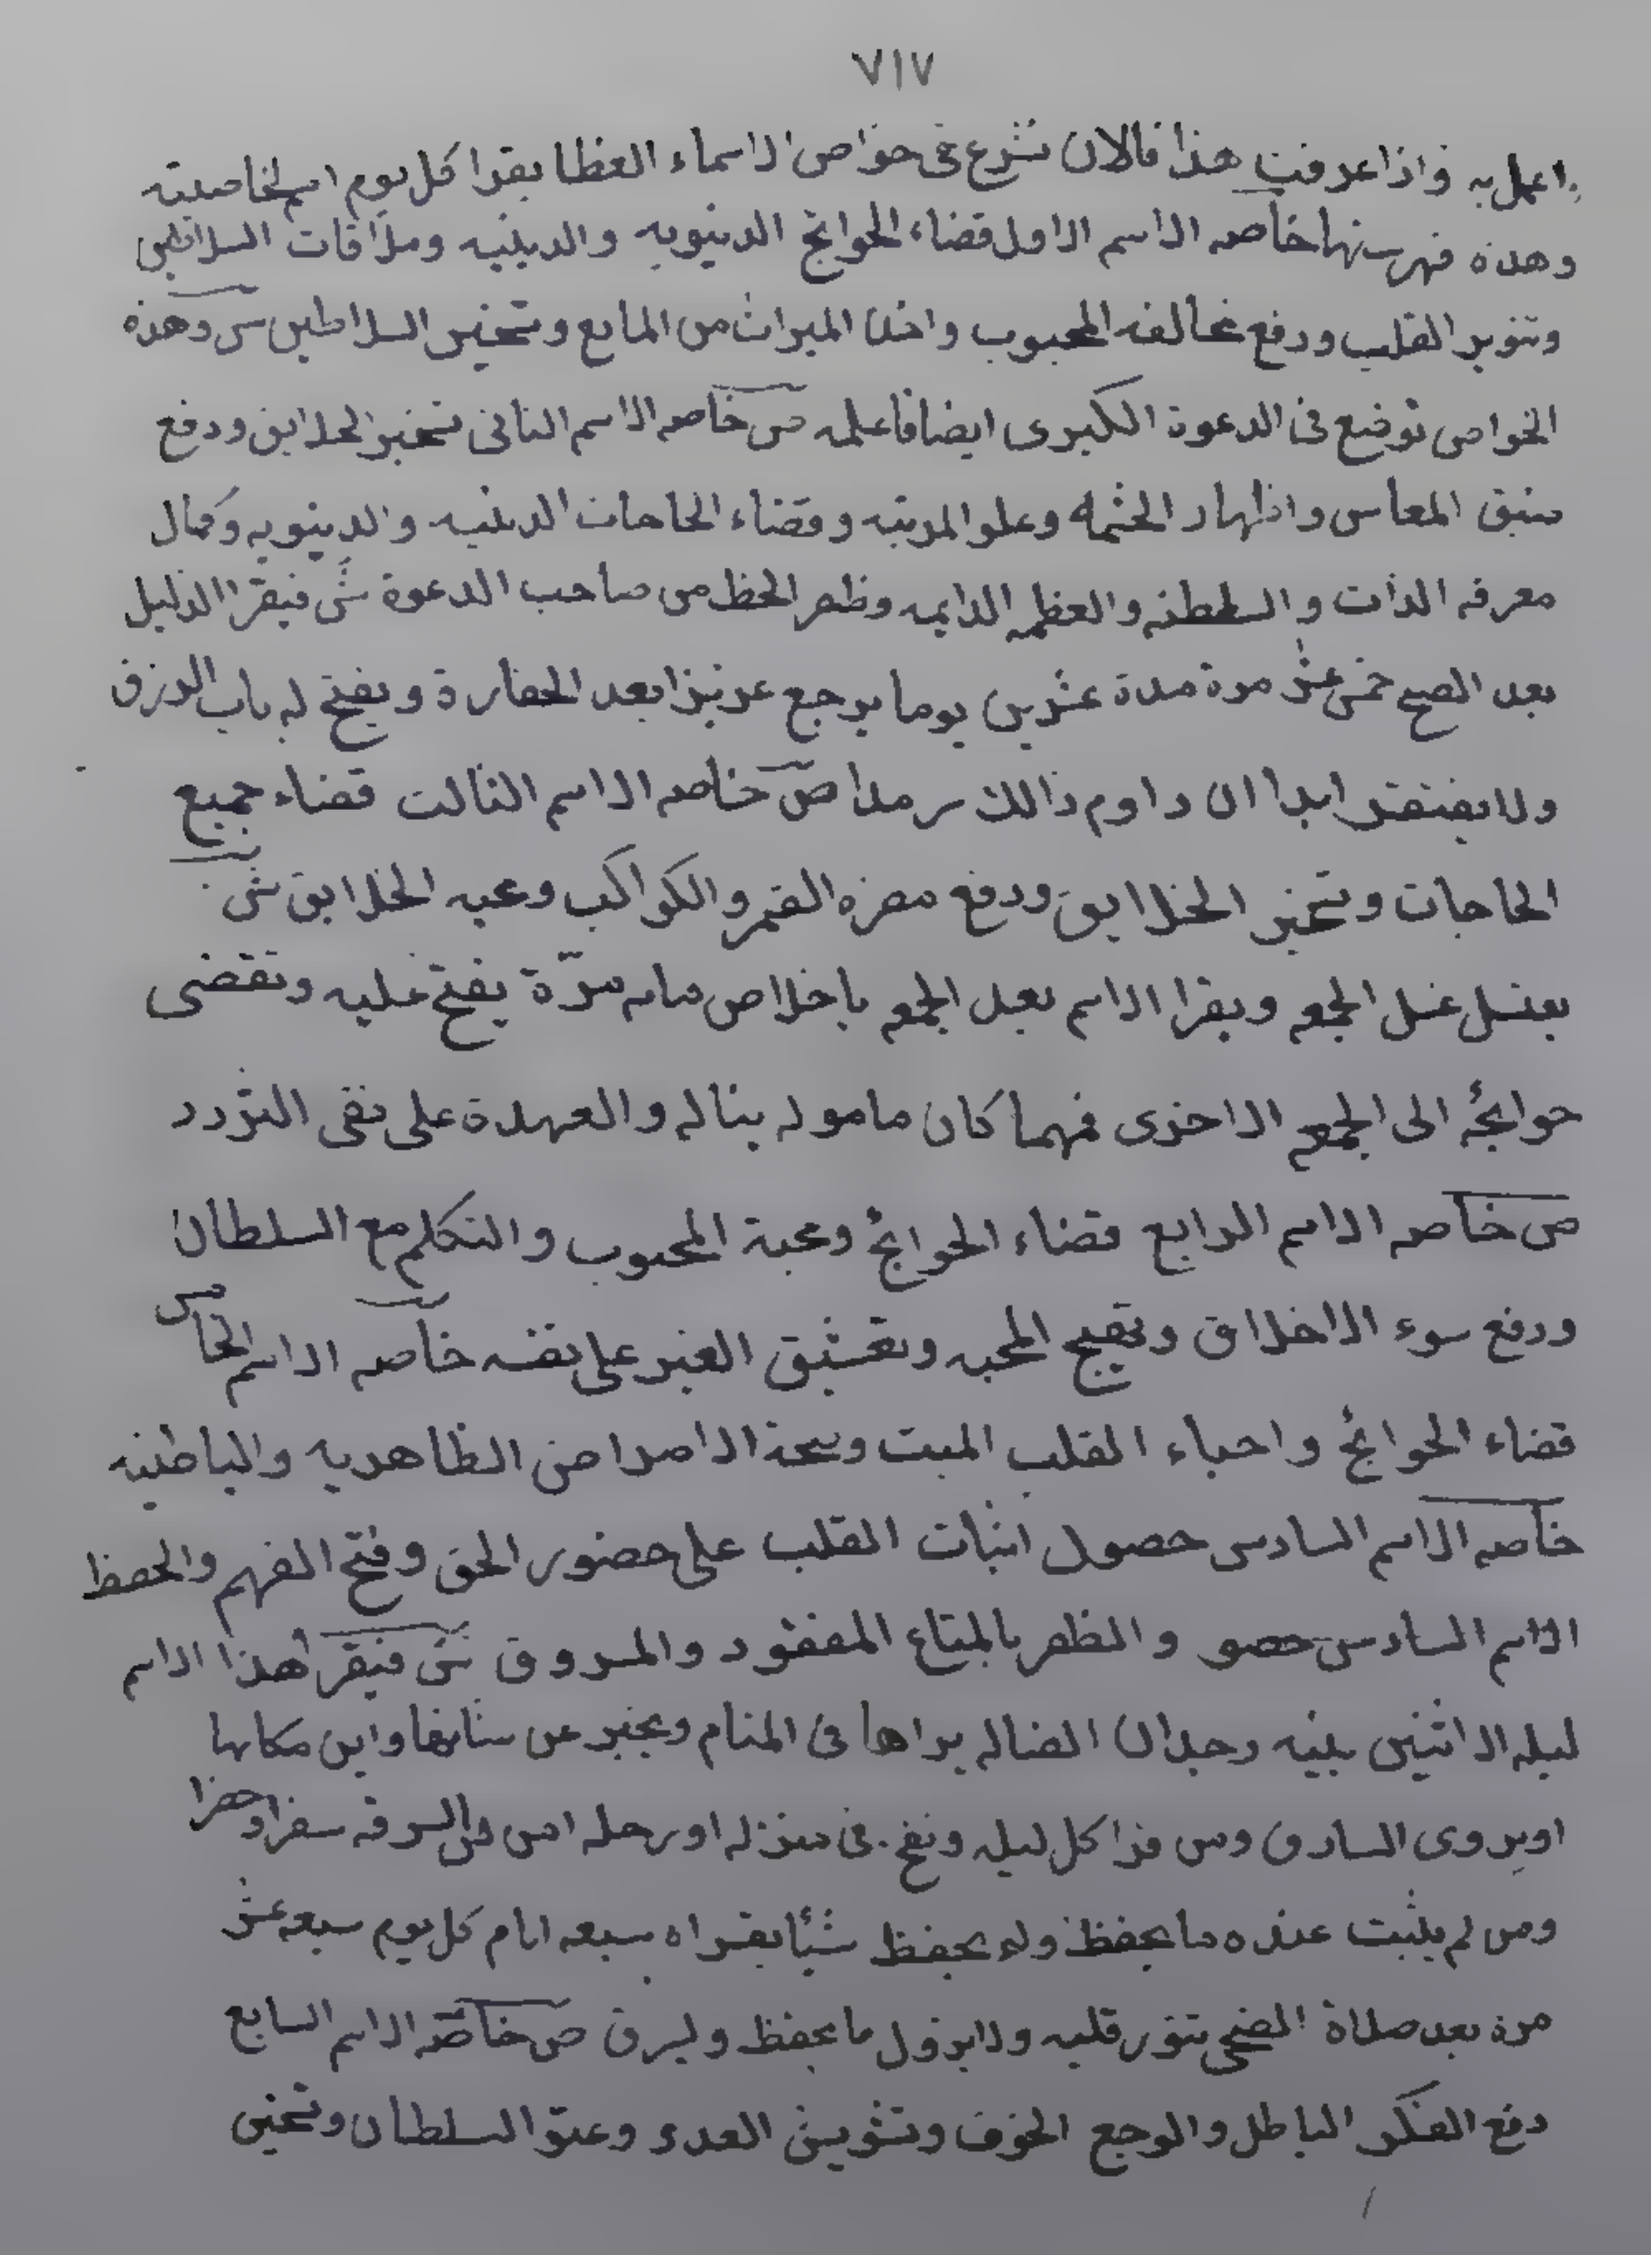 ٧١٧
اعمل به واذا عرفت هذا فالان نشرع فى خواص الاسماء العظا يقرا كل يوم اسم لخاصيته
وهذه فهرستها خاصه الاسم الاول قضاء الحوائج الدنيويه والدينيه وملاقات السلاطين
وتنوير القلب ودفع مخالفه المحبوب واخذ الميراث من المانع وتسخير السلاطين وهذه
الخواص توضع فى الدعوة الكبرى ايضا فاعلمه ص خاصه الاسم الثانى تسخير الخلايق ودفع
ضيق المعاش واظهار الحشمه وعلو المرتبه وقضاء الحاجات الدينيه والدنيويه وكمال
معرفه الذات والسلطنه والعظمه الدايمه وظهر الحظ من صاحب الدعوة شى فيقرا الذليل
بعد الصبح خمس عشر مرة مدة عشرين يوما يرجع عزيزا بعد الحقارة ويفتح له باب الرزق
ولا يفتقر ابدا ان داوم ذالك سرمدا ص خاصه الاسم الثالث قضاء جميع
الحاجات وتسخير الخلايق ودفع مضره القمر والكواكب ومحبه الخلايق شى
يغتسل غسل الجمعه ويقرا الاسم بعد الجمعه باخلاص مايه مرّة يفتح عليه وتقضى
حوائجه الى الجمعه الاخرى فمهما كان ماموله يناله والعهدة على نفى التردد
ص خاصه الاسم الرابع قضاء الحوائج ومحبة المحبوب والتكلم مع السلطان
ودفع سوء الاخلاق وتهييج المحبه وتعشيق الغير على نفسه خاصه الاسم الخامس
قضاء الحوائج واحياء القلب الميت وصحة الامراض الظاهريه والباطنيه
خاصه الاسم السادس حصول اثبات القلب على حضور الحق وفتح الفهم والحفظ
الاسم السادس حصو والظفر بالمتاع المفقود والمسروق شى فيقرا هذا الاسم
ليله الاثنين بنيه وجدان الضاله يراها فى المنام ويخبر عن سارقها واين مكانها
اويروى السارق ومن قرا كل ليله ونفخ فى منزله او رحله امن من السرقه سفرا وحضرا
ومن لم يثبت عنده ما يحفظ ولم يحفظ شيئا يقراه سبعه ايام كل يوم سبعه عشر
مرة بعد صلاة الضحى يتنور قلبه ولا يزول ما يحفظ وليرق ص خاصه الاسم السابع
دفع الفكر الباطل والوجع الخوف وتشويش العدو وعتو السلطان وتسخير